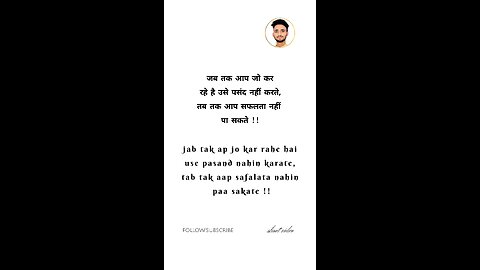 जब तक आप जो कर
रहे है उसे पसंद नहीं करते,
तब तक आप सफलता नहीं
पा सकते !!
jab tak ap jo kar rahe hai
use pasand nahin karate,
tab tak aap safalata nahin
paa sakate !!
FOLLOW/SUBSCRIBE